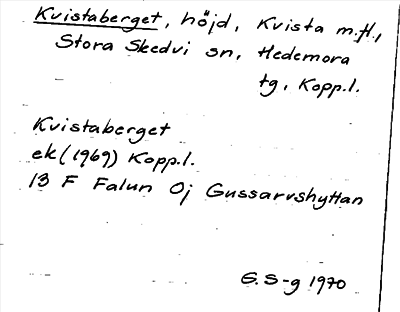 Kvistaberget, höjd, Kvista m.fl.,
Stora Skedvi sn, Hedemora
tg, Kopp.l.
Kvistaberget
ek (1969) Kopp.l.
13 F Falun 0j Gussarvshyttan
G. S-g 1970